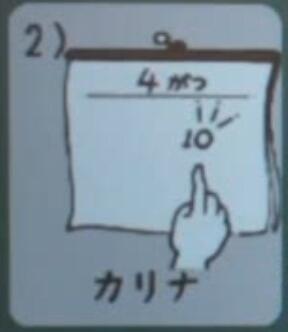 2)
4 がつ
10
カリナ